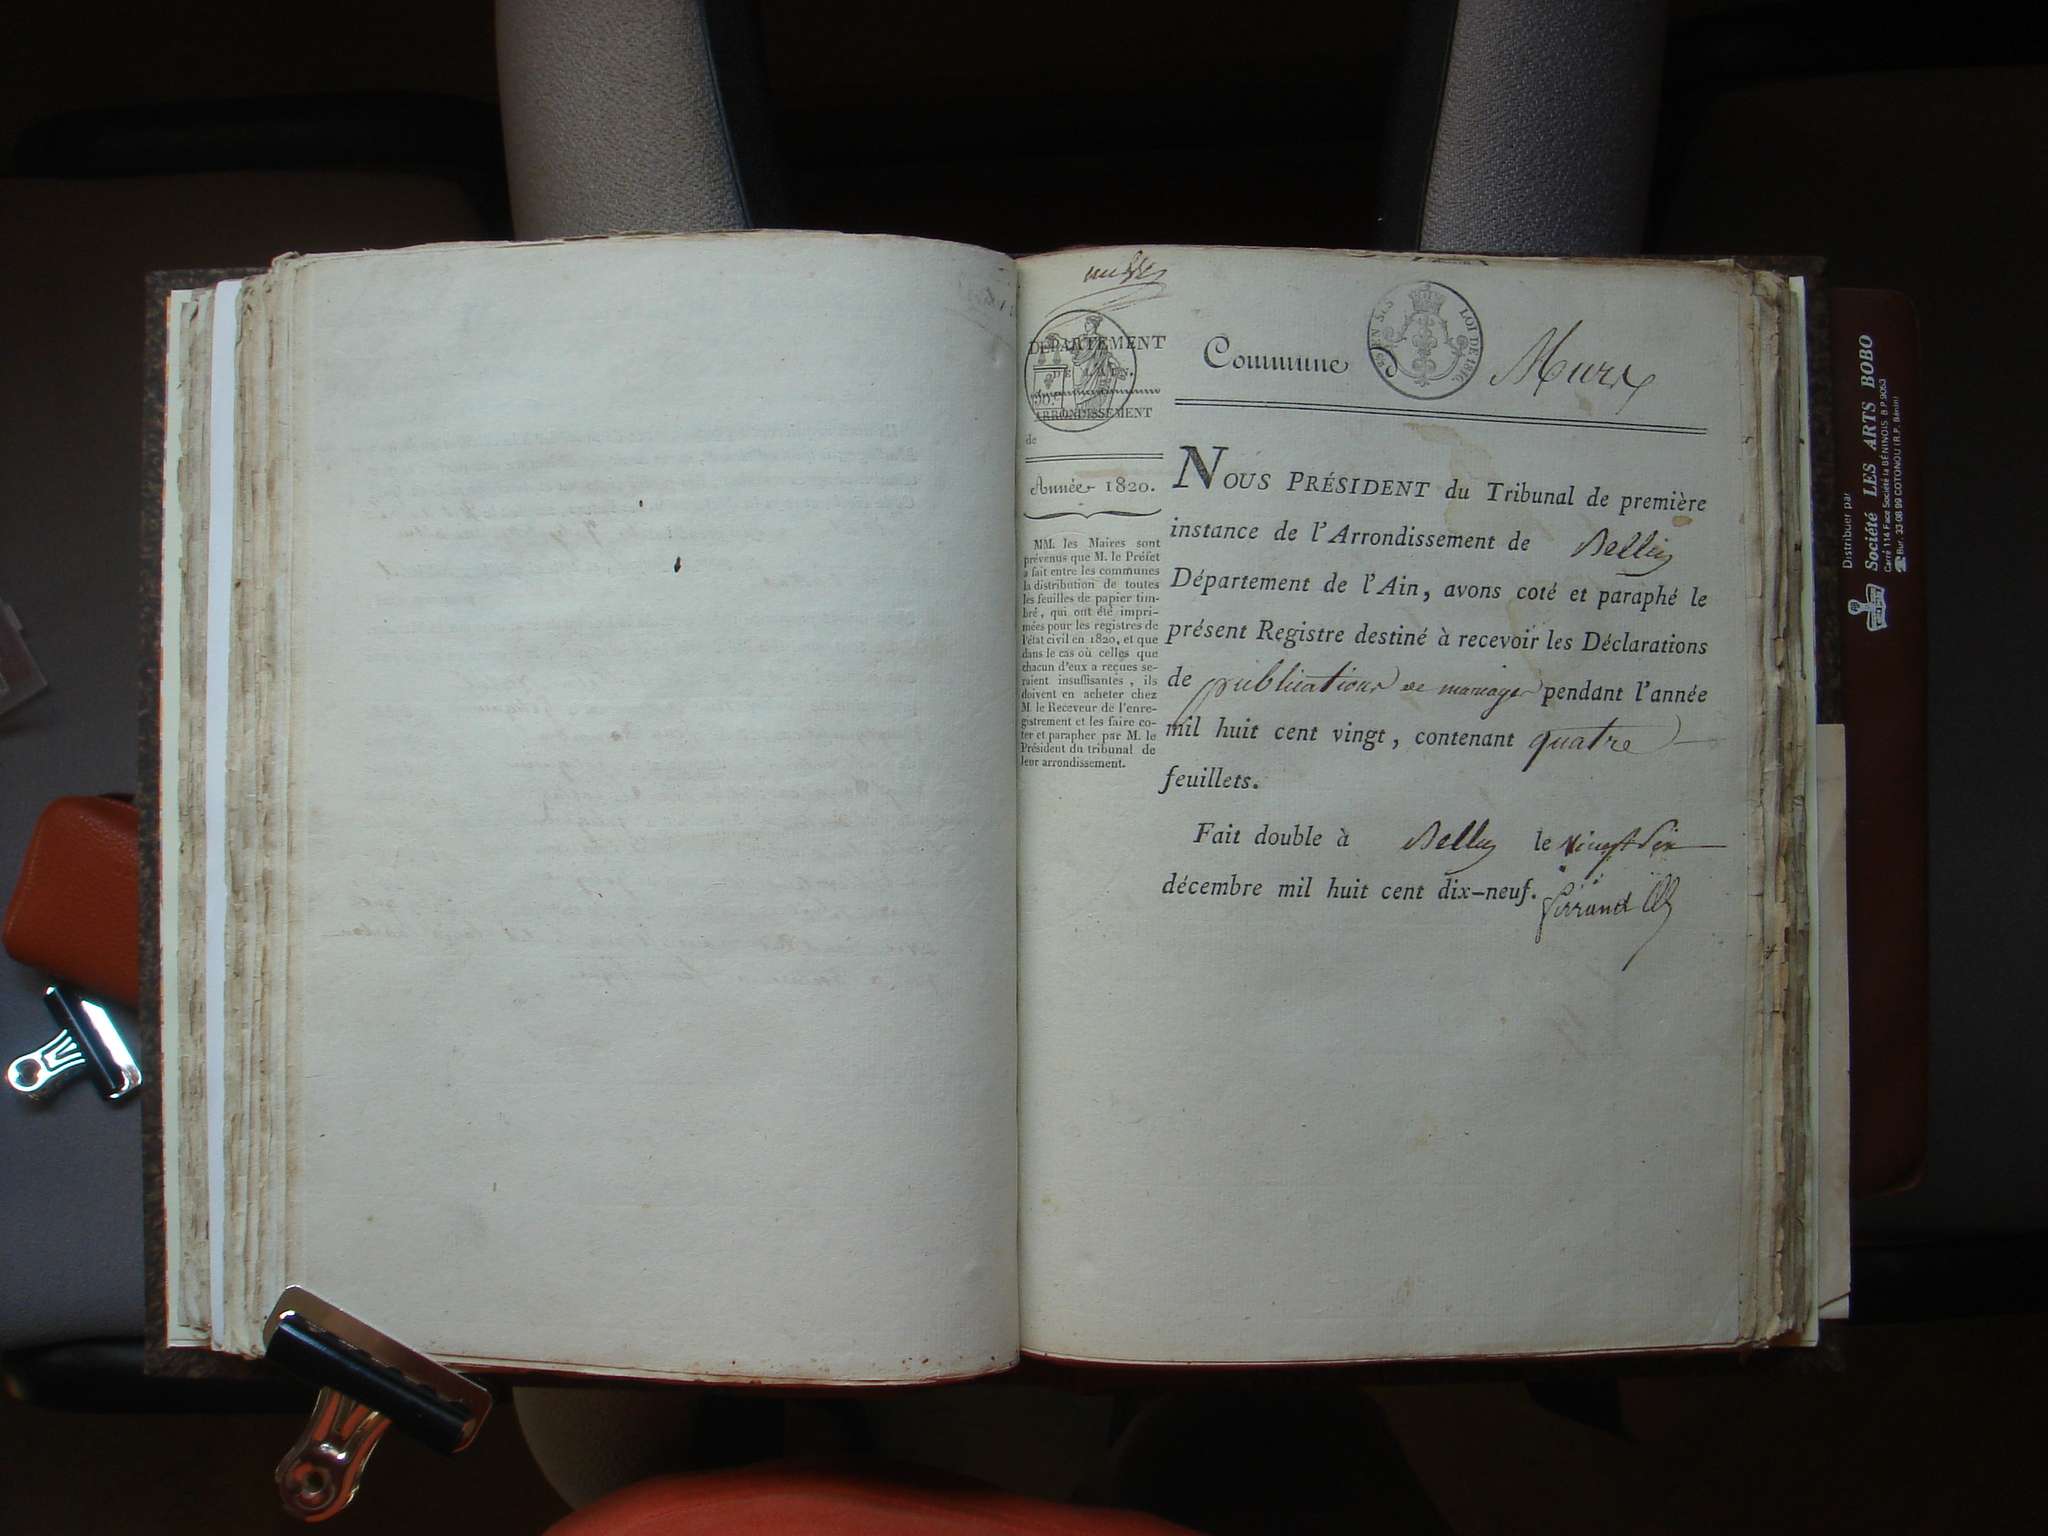 DÉPARTEMENT
DE L'AIN.
ARRONDISSEMENT
de
Année 1820.
MM. les Maires sont
prévenus que M. le Préfet
a fait entre les communes
la distribution de toutes
les feuilles de papier tim-
bré, qui ont été impri-
mées pour les registres de
l'état civil en 1820, et que
dans le cas où celles que
chacun d'eux a reçues se-
raient insuffisantes, ils
doivent en acheter chez
M. le Receveur de l'enre-
gistrement et les faire co-
ter et parapher par M. le
Président du tribunal de
leur arrondissement.
Commune
LOI DE 1816
Murs
NOUS PRÉSIDENT du Tribunal de première
instance de l'Arrondissement de Belley
Département de l'Ain, avons coté et paraphé le
présent Registre destiné à recevoir les Déclarations
de publications de mariages pendant l'année
mil huit cent vingt, contenant quatre
feuillets.
Fait double à Belley le vingt six
décembre mil huit cent dix-neuf.
Distribuer par
Société LES ARTS BOBO
Carré 114 Face Société la BÉNINOIS B.P. 9053
☎ Bur. 33 08 99 COTONOU (R.P. Bénin)